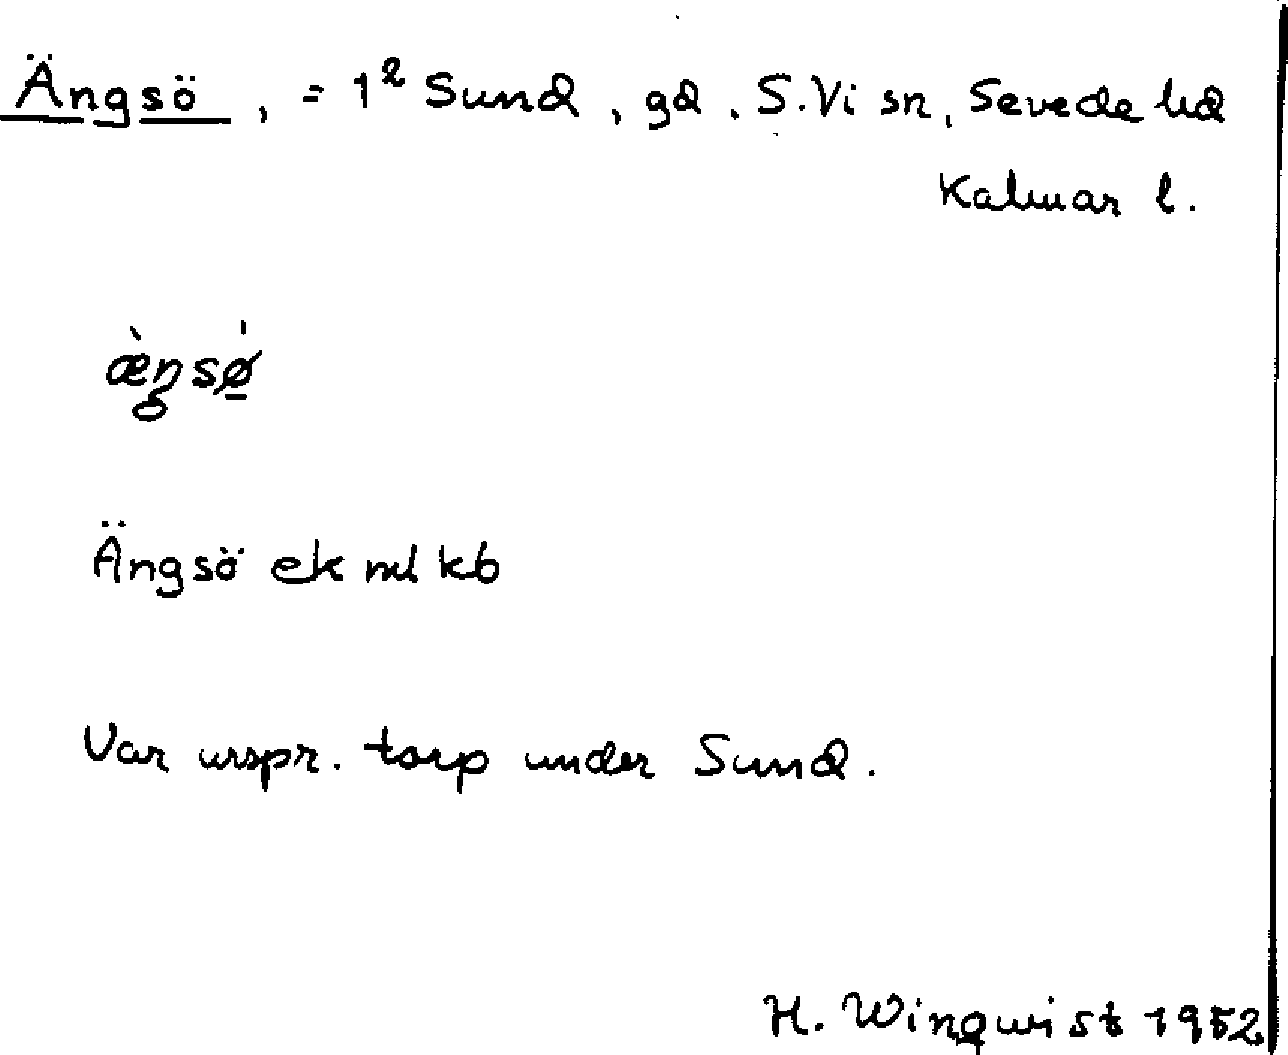 Ängsö, = 1² Sund, gd, S. Vi sn, Sevede hd
Kalmar l.
æ̀ŋsø̠̍
Ängsö ek ml kb
Var urspr. torp under Sund.
H. Winqwist 1952